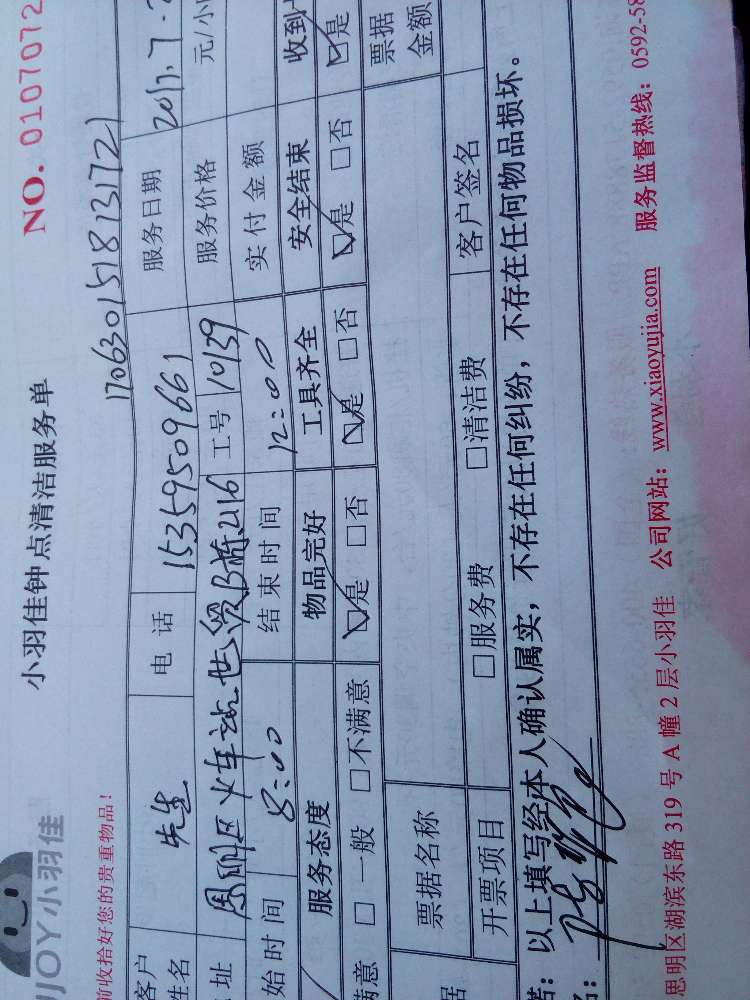 JOY小羽佳
小羽佳钟点清洁服务单
NO. 0107072
前收拾好您的贵重物品!
1706301518131721
客户姓名 先生 电话 15359509661 服务日期 2017.7.
址 思明区火车站世贸B栋2116 工号 10139 服务价格 元/小
始时间 8:00 结束时间 12:00 实付金额
服务态度 物品完好 工具齐全 安全结束 收到
满意 □一般 □不满意 ☑是 □否 ☑是 □否 ☑是 □否 ☑是
票据名称 票据金额
开票项目 □服务费 □清洁费 客户签名
诺:以上填写经本人确认属实,不存在任何纠纷,不存在任何物品损坏。
思明区湖滨东路 319 号 A 幢 2 层小羽佳 公司网站:www.xiaoyujia.com 服务监督热线:0592-58